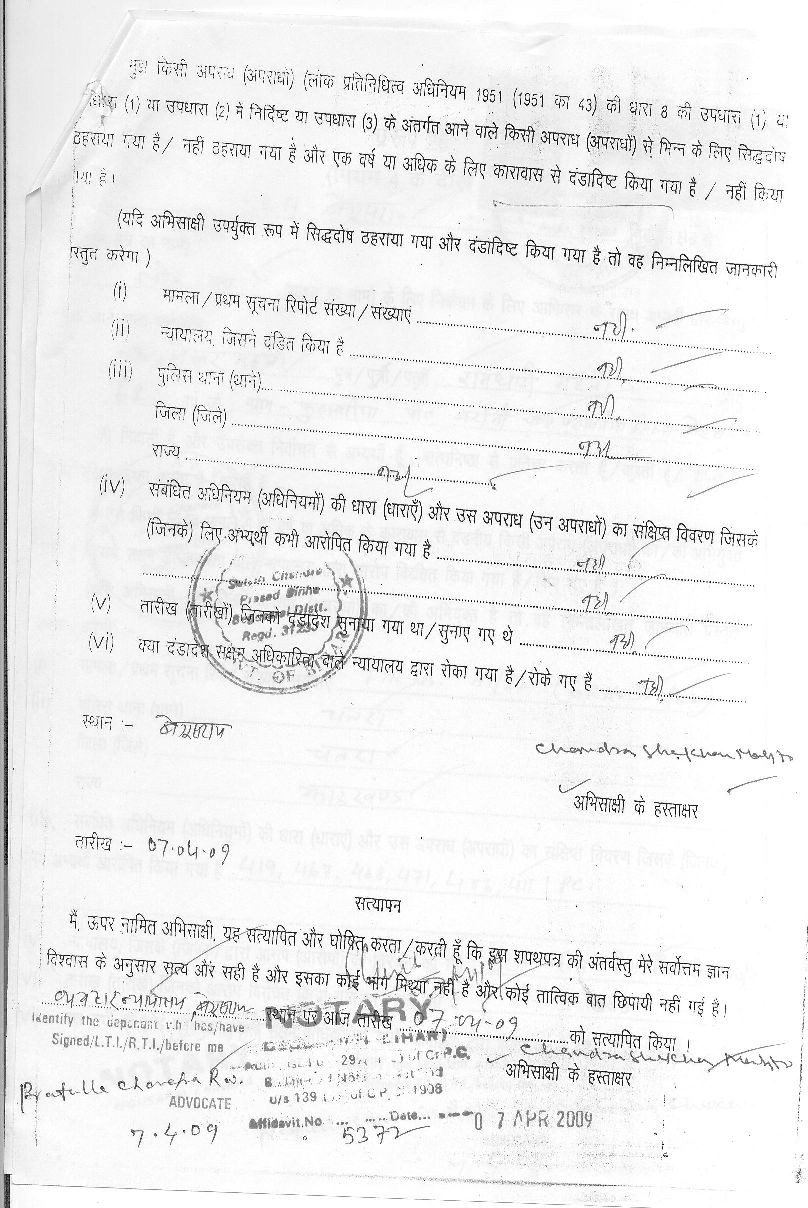 मुझे किसी अपराध (अपराधों) (लोक प्रतिनिधित्व अधिनियम 1951 (1951 का 43) की धारा 8 की उपधारा (1) या
(1) या उपधारा (2) में निर्दिष्ट या उपधारा (3) के अंतर्गत आने वाले किसी अपराध (अपराधों) से भिन्न के लिए सिद्धदोष
ठहराया गया है / नहीं ठहराया गया है और एक वर्ष या अधिक के लिए कारावास से दंडादिष्ट किया गया है / नहीं किया
गया है।
(यदि अभिसाक्षी उपर्युक्त रूप में सिद्धदोष ठहराया गया और दंडादिष्ट किया गया है तो वह निम्नलिखित जानकारी
स्तुत करेगा )
(i) मामला / प्रथम सूचना रिपोर्ट संख्या / संख्याएं नहीं
(ii) न्यायालय, जिसने दंडित किया है नहीं
(iii) पुलिस थाना (थाने) नहीं
जिला (जिले) नहीं
राज्य नहीं
(iv) संबंधित अधिनियम (अधिनियमों) की धारा (धाराएँ) और उस अपराध (उन अपराधों) का संक्षिप्त विवरण जिसके
(जिनके) लिए अभ्यर्थी कभी आरोपित किया गया है नहीं
नहीं
(v) तारीख (तारीखों) जिनको दंडादेश सुनाया गया था / सुनाए गए थे नहीं
(vi) क्या दंडादेश सक्षम अधिकारिता वाले न्यायालय द्वारा रोका गया है / रोके गए हैं नहीं
Satish Chandra
Prasad Sinha
Regd. 312
OF BIHAR
स्थान :- बेगूसराय
Chandra Shekhar Mahto
अभिसाक्षी के हस्ताक्षर
तारीख :- 07.04.09
सत्यापन
मैं, ऊपर नामित अभिसाक्षी, यह सत्यापित और घोषित करता / करती हूँ कि इस शपथपत्र की अंतर्वस्तु मेरे सर्वोत्तम ज्ञान
विश्वास के अनुसार सत्य और सही है और इसका कोई भाग मिथ्या नहीं है और कोई तात्विक बात छिपायी नहीं गई है।
व्यवहार न्यायालय बेगूसराय स्थान पर आज तारीख 07.04.09 को सत्यापित किया ।
Identify the deponent who has/have
Signed/L.T.I./R.T.I./before me
NOTARY
of Cr.P.C.
u/s 139 of C.P.C. 1908
Chandra Shekhar Mahto
अभिसाक्षी के हस्ताक्षर
ADVOCATE
7.4.09
Affidavit.No. 5372 Date 07 APR 2009